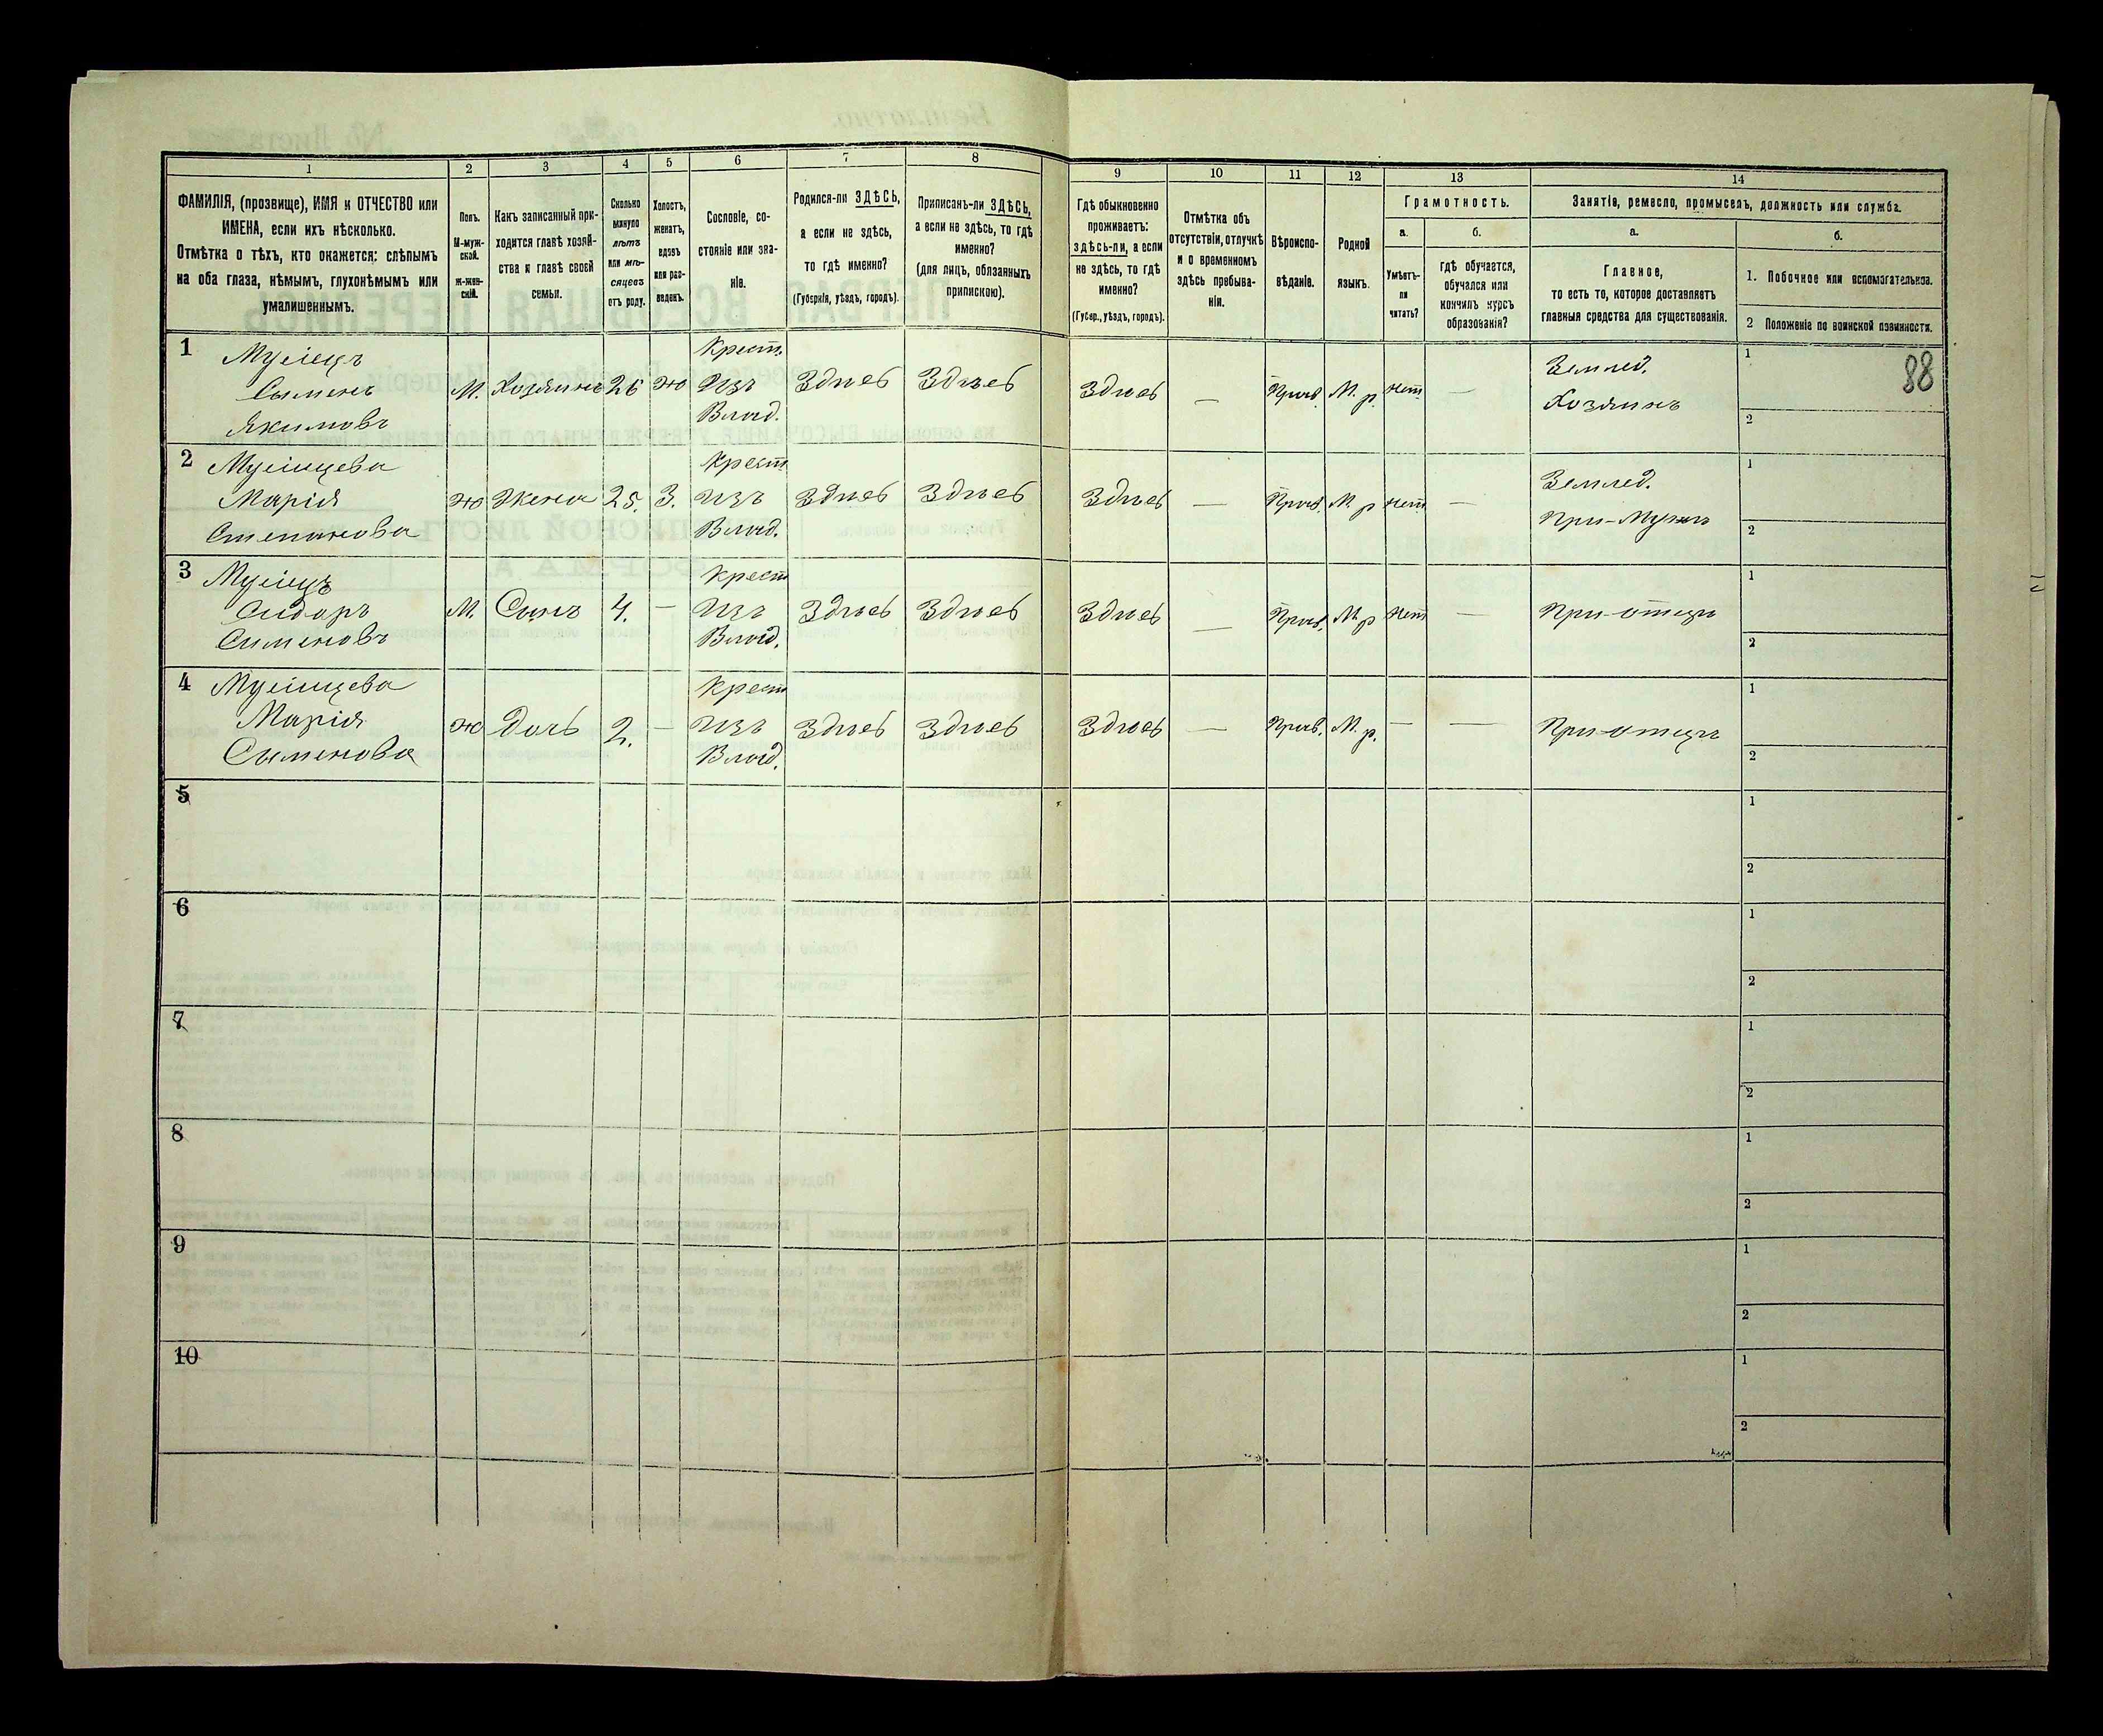 1 2 3 4 5 6 7 8 9 10 11 12 13 14
ФАМИЛІЯ, (прозвище), ИМЯ и ОТЧЕСТВО или
ИМЕНА, если ихъ нѣсколько.
Отмѣтка о тѣхъ, кто окажется: слѣпымъ
на оба глаза, нѣмымъ, глухонѣмымъ или
умалишеннымъ.
Полъ.
М-муж-
ской.
ж-жен-
скій.
Какъ записанный при-
ходится главѣ хозяй-
ства и главѣ своей
семьи.
Сколько
минуло
лѣтъ
или мѣ-
сяцевъ
отъ роду.
Холостъ,
женатъ,
вдовъ
или раз-
веденъ.
Сословіе, со-
стояніе или зва-
ніе.
Родился-ли ЗДѢСЬ,
а если не здѣсь,
то гдѣ именно?
(Губернія, уѣздъ, городъ).
Приписанъ-ли ЗДѢСЬ,
а если не здѣсь, то гдѣ
именно?
(для лицъ, обязанныхъ
припискою).
Гдѣ обыкновенно
проживаетъ:
здѣсь-ли, а если
не здѣсь, то гдѣ
именно?
(Губер., уѣздъ, городъ).
Отмѣтка объ
отсутствіи, отлучкѣ
и о временномъ
здѣсь пребыва-
ніи.
Вѣроиспо-
вѣданіе.
Родной
языкъ.
Грамотность.
а.
Умѣетъ-
ли
читать?
б.
гдѣ обучается,
обучался или
кончилъ курсъ
образованія?
Занятіе, ремесло, промыселъ, должность или служба.
а.
Главное,
то есть то, которое доставляетъ
главныя средства для существованія.
б.
1. Побочное или вспомогательное.
2 Положеніе по воинской повинности.
88
1
Якимовъ
М. Хозяинъ 26 ж
Крест.
Изъ
Влад.
Здѣсь Здѣсь Здѣсь — Прав. М. р. нет —
Землед.
Хозяинъ
1
2
2
Марія
Степанова
ж Жена 25. З.
Крест
изъ
Влад.
Здѣсь Здѣсь Здѣсь — Прав. М. р нет —
Землед.
При-Мужѣ
1
2
3
Сидоръ
Сименовъ
М. Сынъ 4. —
Крест
Изъ
Влад.
Здѣсь Здѣсь Здѣсь — Прав. М. р Нет —
При-отцѣ
1
2
4
Марія
Сыменова
ж Дочь 2. —
Крест
изъ
Влад.
Здѣсь Здѣсь Здѣсь — Прав. М. р. — —
При-отцѣ
1
2
5
1
2
6
1
2
7
1
2
8
1
2
9
1
2
10
1
2